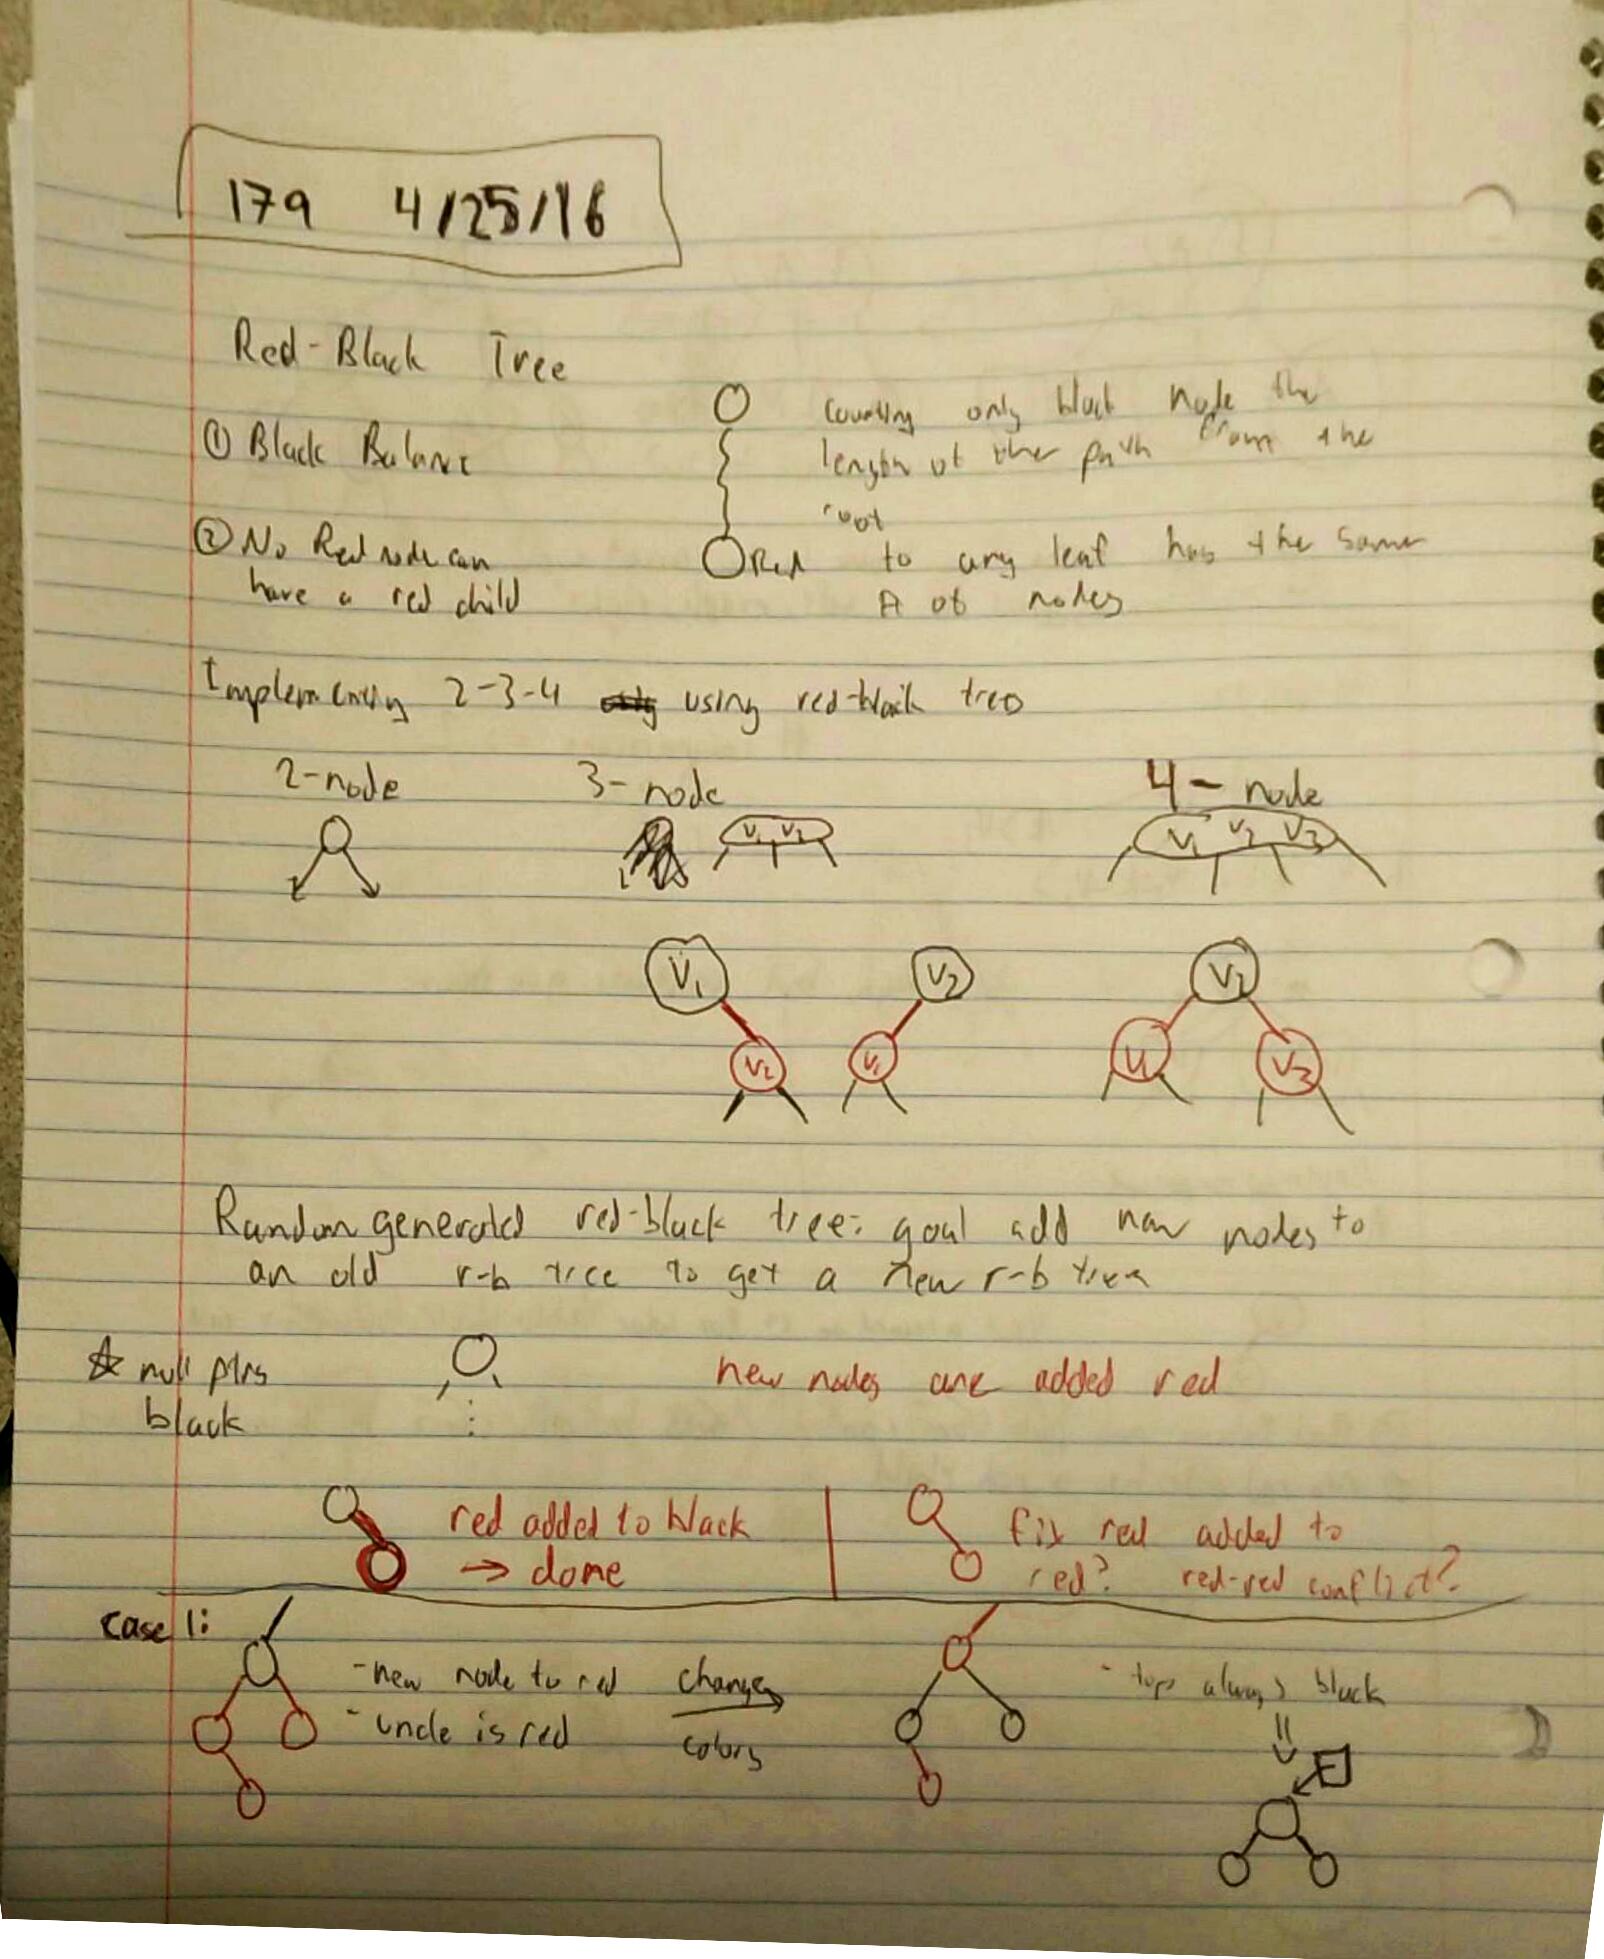 179 4/25/16
Red-Black Tree
① Black Balance
② No Red node can
have a red child
Red
counting only black node the
length of the path from the
root
to any leaf has the same
# of nodes
2-3-4 using red-black tree
2-node 3-node 4-node
V1 V2
V1 V2 V3
V1 V2 V2
V2 V1 V1 V3
Random generated red-black tree: goal add new nodes to
an old r-b tree to get a new r-b tree
☆ null ptrs
black
new nodes are added red
red added to black
→ done
fix red added to
red? red-red conflict?
case 1:
- new node to red
- uncle is red
changes
colors
- tops always black